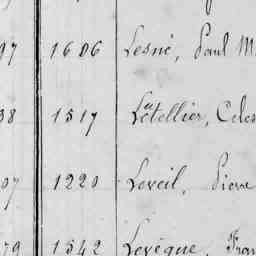 97 1606 Lesné, Paul M
38 1517 Letellier, Celes
07 1220 Leveil, Pierre
79 1542 Levêque, Fran